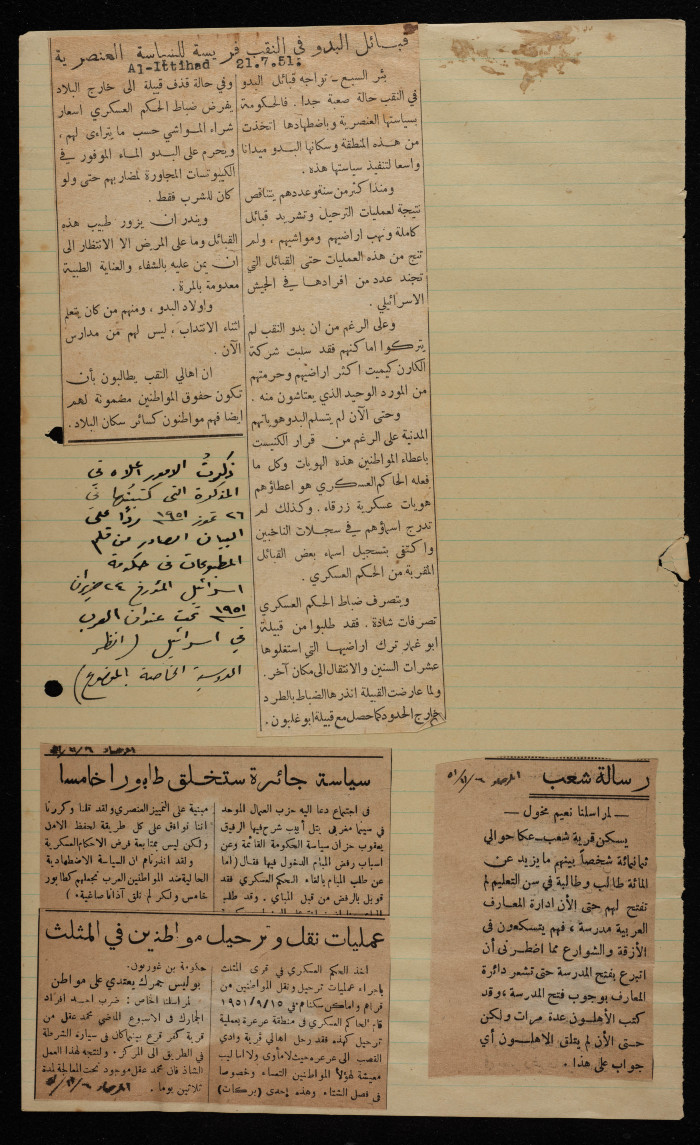 قبائل البدو في النقب فريسة للسياسة العنصرية
Al-Ittihad 21.7.51.
بئر السبع – تواجه قبائل البدو
في النقب حالة صعبة جدا . فالحكومة
بسياستها العنصرية وباضطهادها اتخذت
من هذه المنطقة وسكانها البدو ميدانا
واسعا لتنفيذ سياستها هذه .
ومنذ اكثر من سنة وعددهم يتناقص
نتيجة لعمليات الترحيل وتشريد قبائل
كاملة ونهب اراضيهم ومواشيهم . ولم
تنج من هذه العمليات حتى القبائل التي
تجند عدد من افرادها في الجيش
الاسرائيلي .
وعلى الرغم من ان بدو النقب لم
يتركوا اماكنهم فقد سلبت شركة
الكارن كيميت اكثر اراضيهم وحرمتهم
من المورد الوحيد الذي يعتاشون منه .
وحتى الآن لم يتسلم البدو هوياتهم
المدنية على الرغم من قرار الكنيست
باعطاء المواطنين هذه الهويات وكل ما
فعله الحاكم العسكري هو اعطاؤهم
هويات عسكرية زرقاء . وكذلك لم
تدرج اسماؤهم في سجلات الناخبين
واكتفي بتسجيل اسماء بعض القبائل
المقربة من الحكم العسكري .
ويتصرف ضباط الحكم العسكري
تصرفات شاذة . فقد طلبوا من قبيلة
ابو غمار ترك اراضيها التي استغلوها
عشرات السنين والانتقال الى مكان آخر .
ولما عارضت القبيلة انذرها الضباط بالطرد
خارج الحدود كما حصل مع قبيلة ابو غليون .
وفي حالة قذف قبيلة الى خارج البلاد
يفرض ضباط الحكم العسكري اسعار
شراء المواشي حسب ما يتراءى لهم .
ويُحرم على البدو الماء الموفور في
الكيبوتسات المجاورة لمضاربهم حتى ولو
كان للشرب فقط .
ويندر ان يزور طبيب هذه
القبائل وما على المريض الا الانتظار الى
ان يمن عليه بالشفاء والعناية الطبية
معدومة بالمرة .
واولاد البدو ، ومنهم من كان يتعلم
اثناء الانتداب ، ليس لهم من مدارس
الآن .
ان اهالي النقب يطالبون بأن
تكون حقوق المواطنين مضمونة لهم
ايضا فهم مواطنون كسائر سكان البلاد .
ذكرتُ الامور اعلاه في
المذكرة التي كتبتها في
٢٦ تموز ١٩٥١ ردًا على
البيان الصادر من قلم
المطبوعات في حكومة
اسرائيل المؤرخ ٢٤ حزيران
١٩٥١ تحت عنوان العرب
في اسرائيل ( انظر
الدوسية الخاصة بالموضوع )
المرصاد
سياسة جائرة ستخلق طابورا خامسا
في اجتماع دعا اليه حزب العمال الموحد
في سينما مغربي بتل أبيب شرح فيها الرفيق
يعقوب حزان سياسة الحكومة القائمة وعن
اسباب رفض المبام الدخول فيها فقال ( اما
عن طلب المبام بالغاء الحكم العسكري فقد
قوبل بالرفض من قبل المباي . وقد طلبه
مبنية على التمييز العنصري ولقد قلنا وكررنا
اننا نوافق على كل طريقة لحفظ الامن
ولكن ليس بمتابعة فرض الاحكام العسكرية
ولقد انذرناهم ان السياسة الاضطهادية
الحالية ضد المواطنين العرب تجعلهم كطابور
خامس ولكن لم تلق آذانا صاغية . )
عمليات نقل وترحيل مواطنين في المثلث
اخذ الحكم العسكري في قرى المثلث
باجراء عمليات ترحيل ونقل المواطنين من
قراهم واماكن سكناهم في ١٩٥١/٩/١٥
قام الحاكم العسكري في منطقة عرعرة بعملية
ترحيل كهذه فقد رحل اهالي قرية وادي
القصب الى عرعره حيث لا مأوى ولا اسباب
معيشة لهؤلاء المواطنين التعساء وخصوصا
في فصل الشتاء وهذه إحدى ( بركات )
حكومة بن غوريون .
بوليس جمرك يعتدي على مواطن
لمراسلنا الخاص : ضرب احد افراد
الجمارك في الاسبوع الماضي محمد عقل من
قرية كفر قرع بينما كان في سيارة الشرطة
في الطريق الى المركز ، ونتيجة لهذا العمل
الشاذ فان محمد عقل موجود تحت المعالجة لمدة
ثلاثين يوما .
المرصاد
رسالة شعب
المرصاد
– لمراسلنا نعيم مخول –
يسكن قرية شعب – عكا حوالي
ثمانمائة شخصاً بينهم ما يزيد عن
المائة طالب وطالبة في سن التعليم لم
تفتح لهم حتى الآن ادارة المعارف
العربية مدرسة ، فهم يتسكعون في
الأزقة والشوارع مما اضطرني أن
اتبرع بفتح المدرسة حتى تشعر دائرة
المعارف بوجوب فتح المدرسة ، وقد
كتب الأهلون عدة مرات ولكن
حتى الآن لم يتلق الاهلون أي
جواب على هذا .